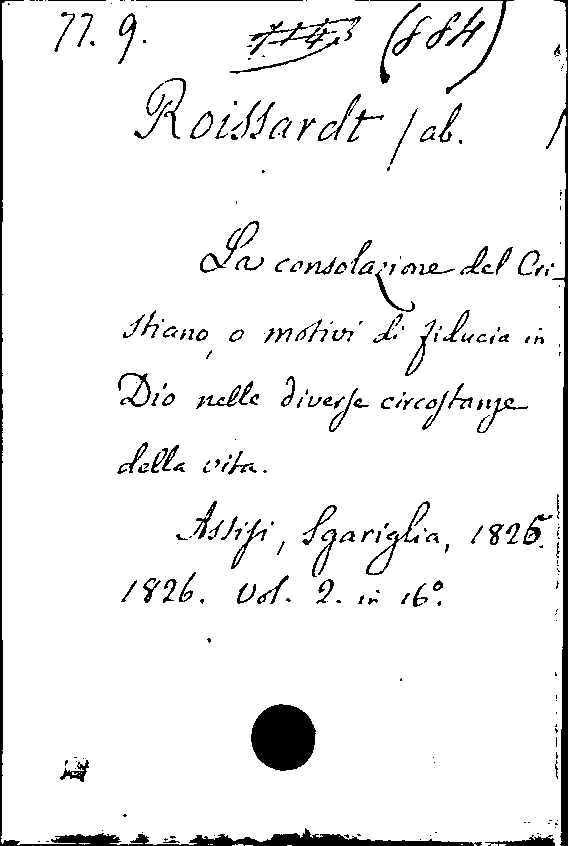 77. 9. (884)
Roissardt / ab.
La consolazione del Cri-
stiano, o motivi di fiducia in
Dio nelle diverse circostanze
della vita.
Assisi, Sgariglia, 1825.
1826. Vol. 2. in 16º.